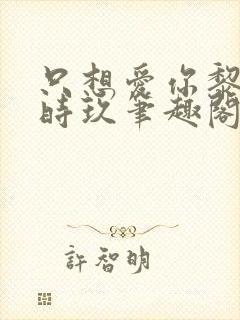 只想爱你黎
時玖筆趣閣
許智明